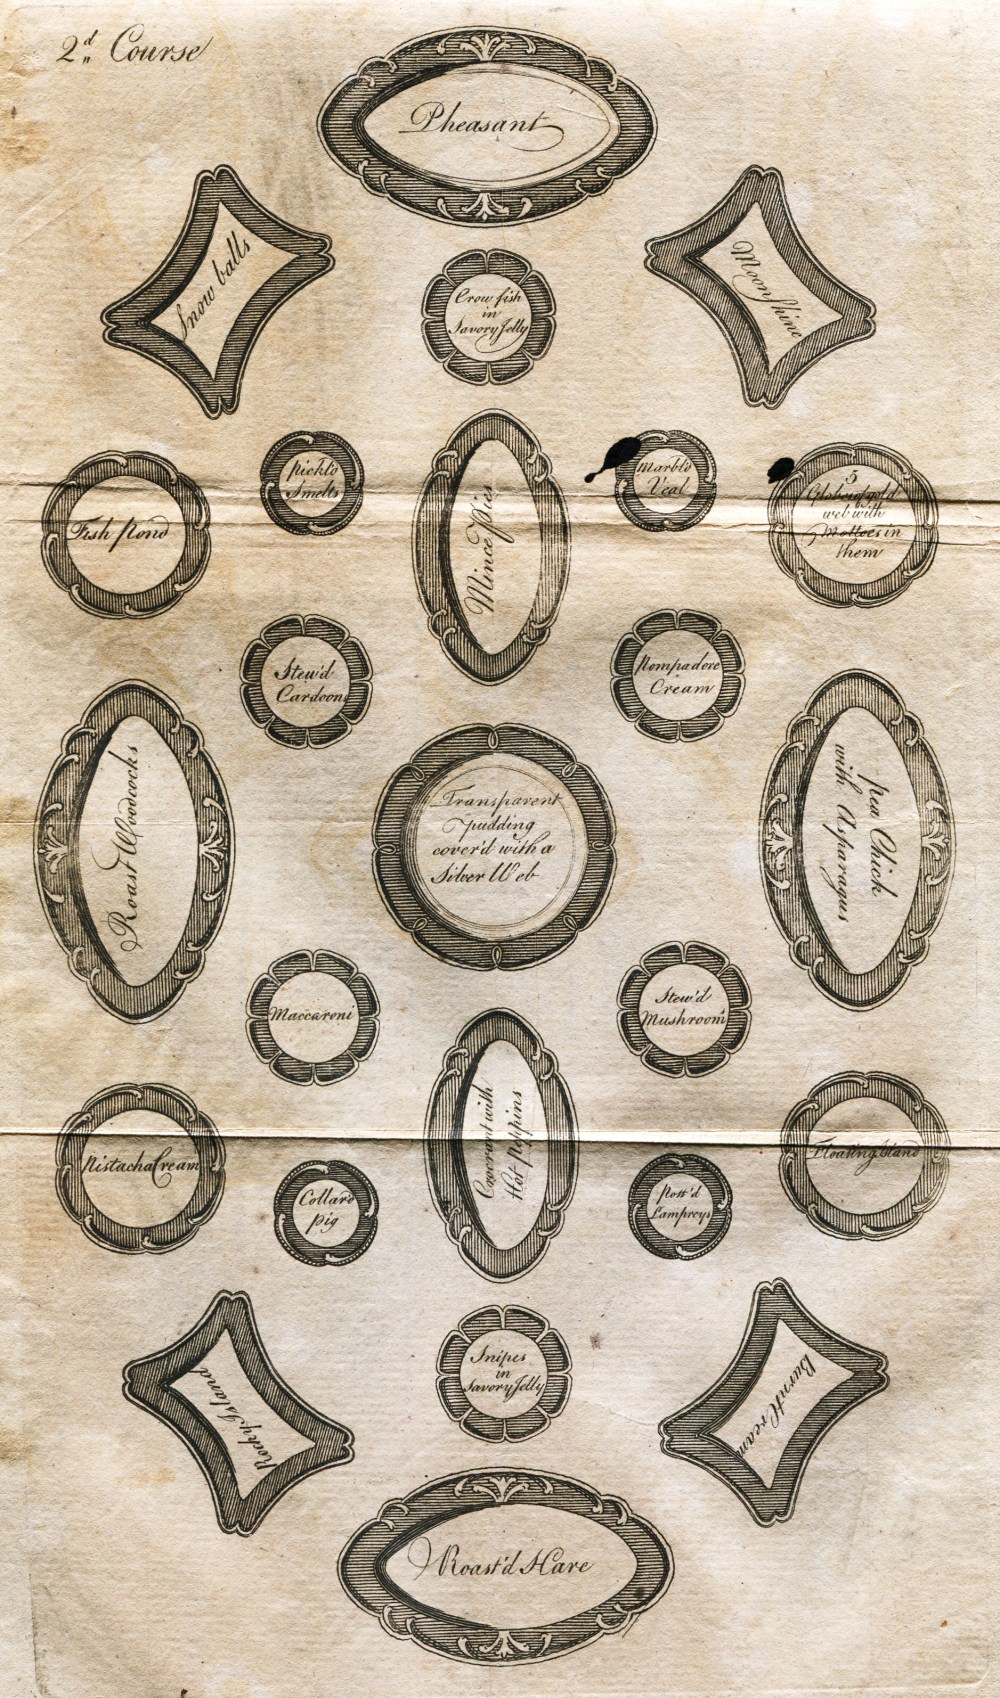 2.d Course
Pheasant
Snow balls
Moonshine
Craw fish
in
Savory Jelly
Pickl'd
Smelts
Marbl'd
Veal
Fish Pond
Mince Pies
5
Globes of gold
web with
Mottoes in
them
Stew'd
Cardoon
Pompadore
Cream
Roast Woodcocks
Transparent
pudding
cover'd with a
Silver Web
pea Chick
with Asparagus
Maccaroni
Stew'd
Mushroom
Pistacha Cream
Collard
pig
with
Hot Peppins
Pott'd
Lampreys
Floating Island
Rocky Island
Snipes
in
Savory Jelly
Burnt Cream
Roast'd Hare